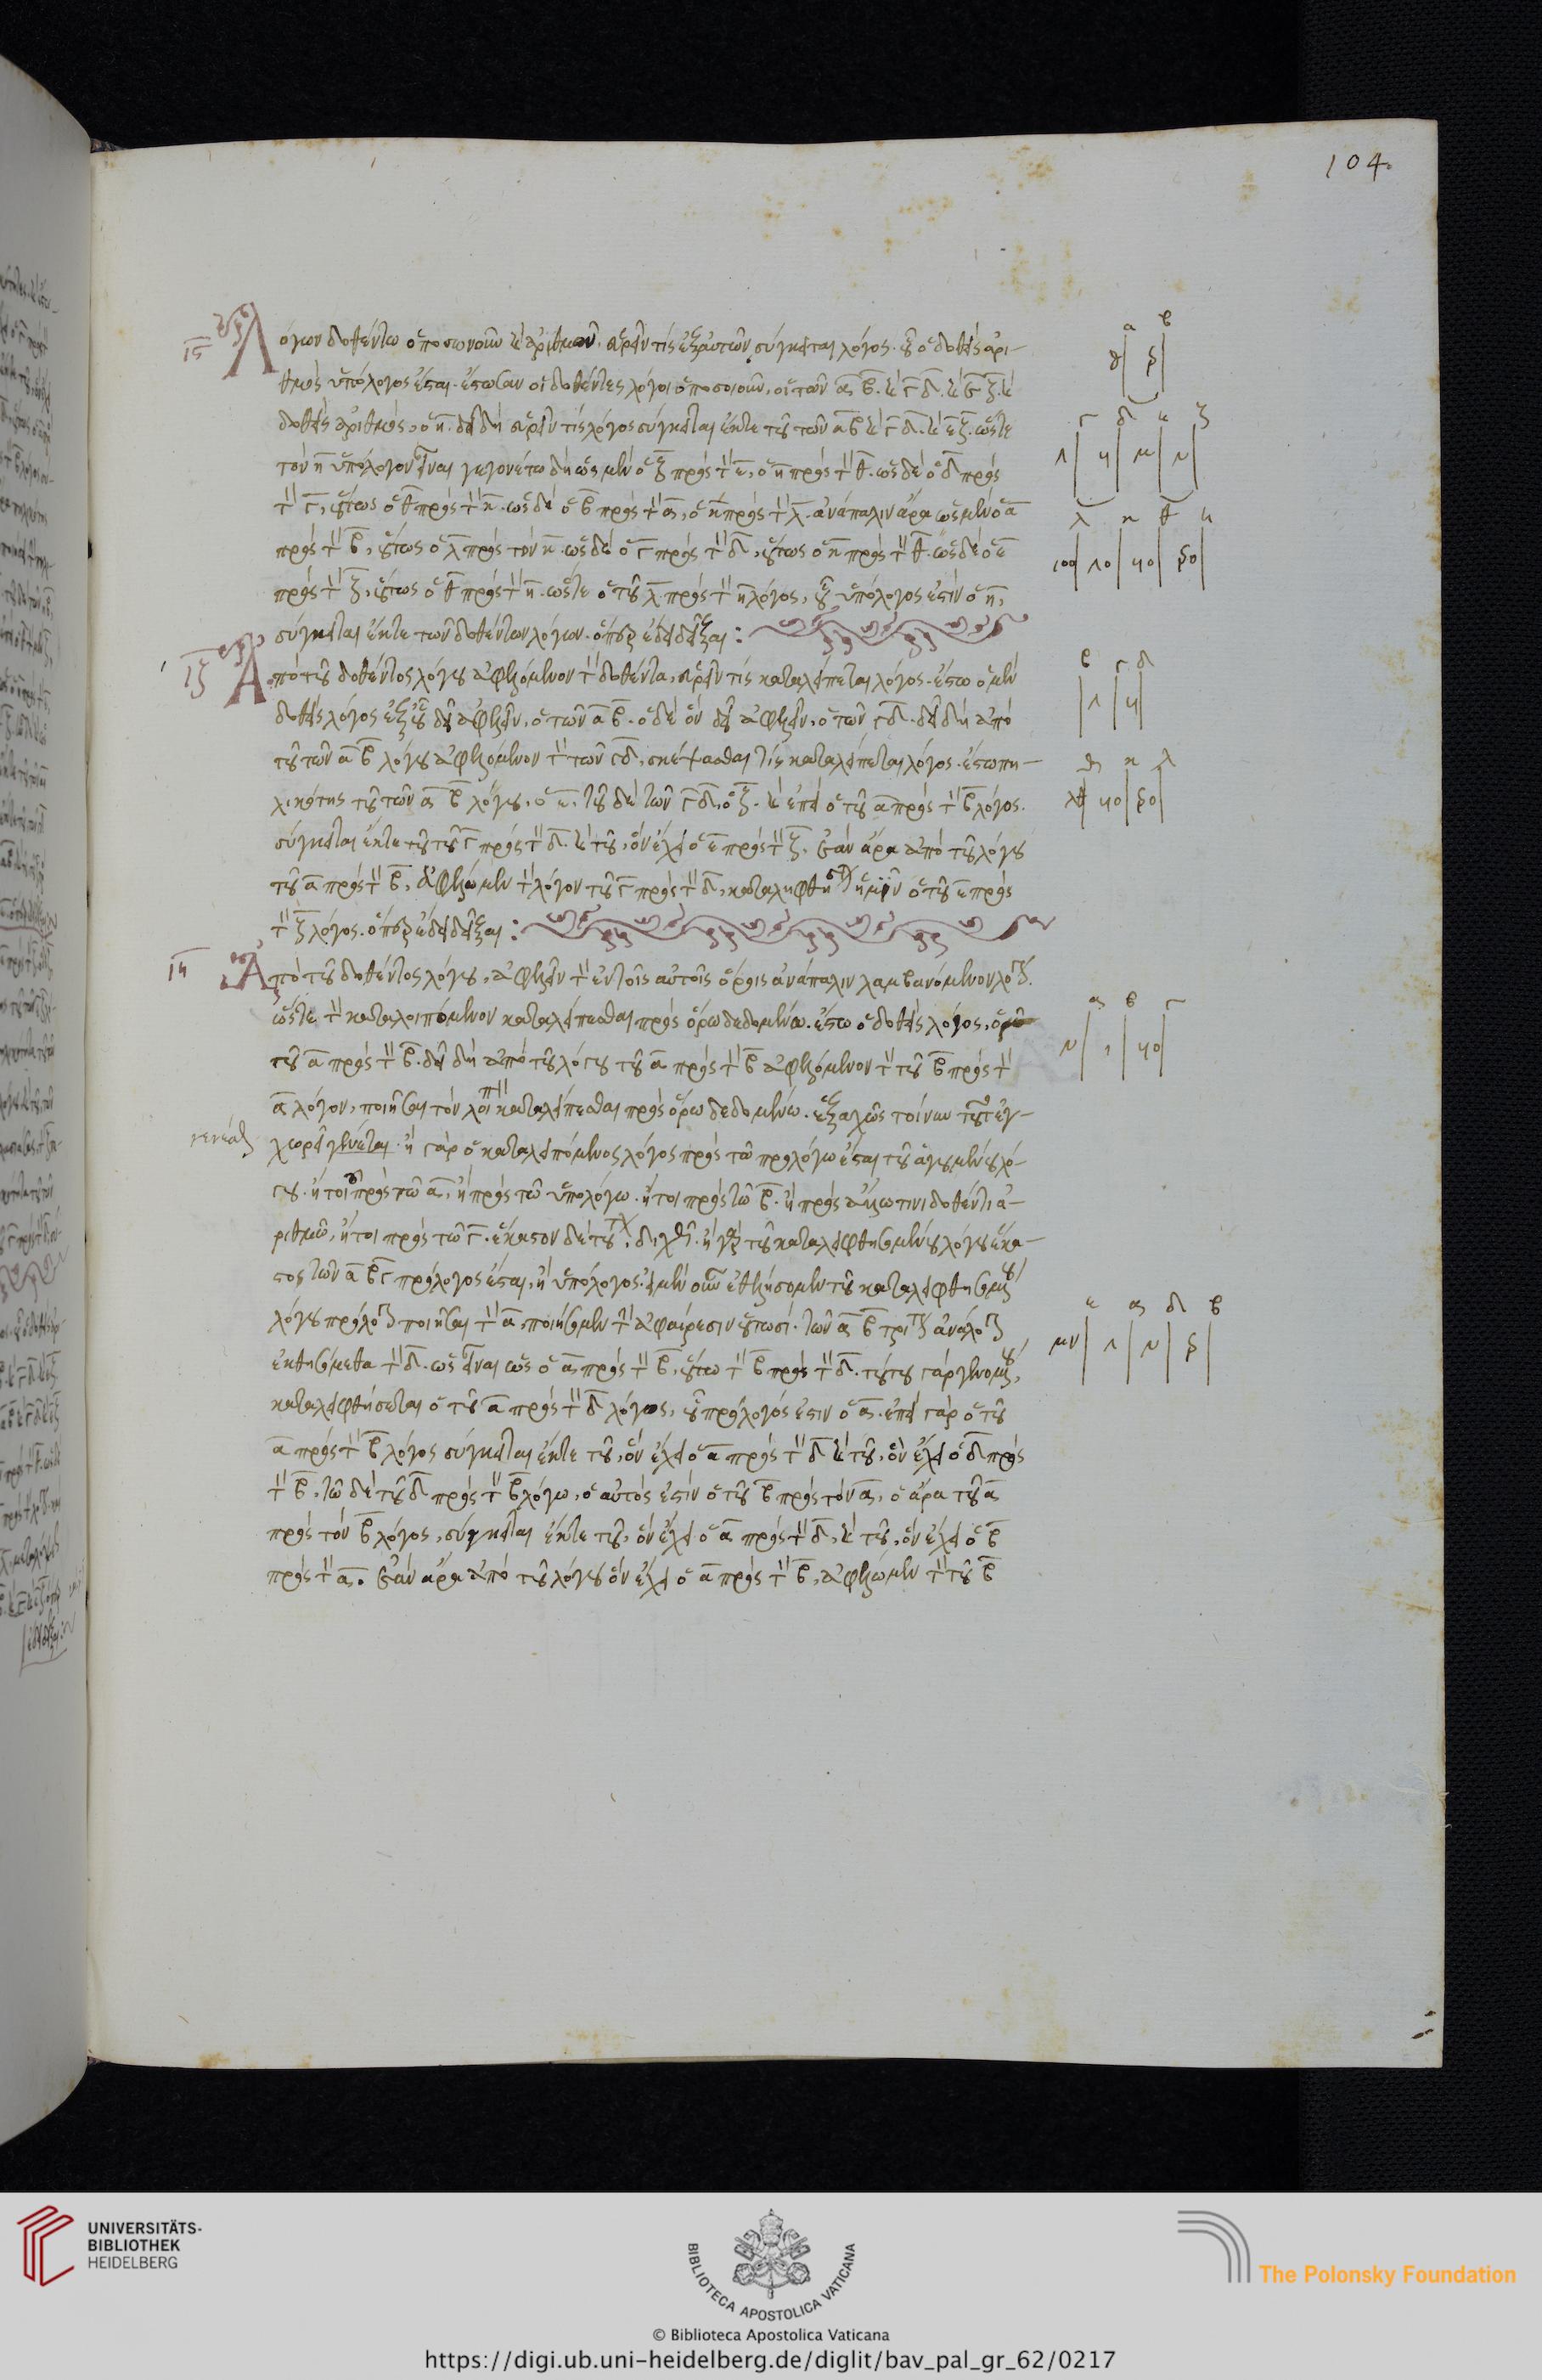 104
ις
Λόγων δοθέντων ὁποσωνοῦν καὶ ἀριθμοῦ, εὑρεῖν τίς ἐξ αὐτῶν σύγκειται λόγος. οὗ ὁ δοθεὶς ἀρι-
θμὸς ὑπόλογος ἔσται. ἔστωσαν οἱ δοθέντες λόγοι ὁποσοιοῦν, οἱ τῶν α β. καὶ γ δ. καὶ ε ζ. καὶ
δοθεὶς ἀριθμὸς, ὁ η. δεῖ δὴ εὑρεῖν τίς λόγος σύγκειται ἔκ τε τοῦ τῶν α β καὶ γ δ. καὶ ε ζ. ὥστε
τὸν η ὑπόλογον εἶναι γεγονέτω δὴ ὡς μὲν ὁ ζ πρὸς τὸν ε, ὁ η πρὸς τὸν θ. ὡς δὲ ὁ δ πρὸς
τὸν γ, οὕτως ὁ θ πρὸς τὸν κ. ὡς δὲ ὁ β πρὸς τὸν α, ὁ κ πρὸς τὸν λ. ἀνάπαλιν ἄρα ὡς μὲν ὁ α
πρὸς τὸν β, οὕτως ὁ λ πρὸς τὸν κ. ὡς δὲ ὁ γ πρὸς τὸν δ, οὕτως ὁ κ πρὸς τὸν θ. ὡς δὲ ὁ ε
πρὸς τὸν ζ, οὕτως ὁ θ πρὸς τὸν η. ὥστε ὁ τοῦ λ πρὸς τὸν η λόγος, οὗ ὑπόλογός ἐστιν ὁ η,
σύγκειται ἔκ τε τῶν δοθέντων λόγων. ὅπερ ἔδει δεῖξαι :
ιζ
Ἀπὸ τοῦ δοθέντος λόγου ἀφελόμενον τὸν δοθέντα, εὑρεῖν τίς καταλείπεται λόγος. ἔστω ὁ μὲν
δοθεὶς λόγος ἐξ οὗ δεῖ ἀφελεῖν, ὁ τῶν α β. ὁ δὲ ὃν δεῖ ἀφελεῖν, ὁ τῶν γ δ. δεῖ δὴ ἀπὸ
τοῦ τῶν α β λόγου ἀφελόμενον τὸν τῶν γ δ, σκέψασθαι τίς καταλείπεται λόγος. ἔστω πη-
λικότης τοῦ τῶν α β λόγου, ὁ ε. τοῦ δὲ τῶν γ δ, ὁ ζ. καὶ ἐπεὶ ὁ τοῦ α πρὸς τὸν β λόγος.
σύγκειται ἔκ τε τοῦ τοῦ γ πρὸς τὸν δ. καὶ τοῦ, ὃν ἔχει ὁ ε πρὸς τὸν ζ. ἐὰν ἄρα ἀπὸ τοῦ λόγου
τοῦ α πρὸς τὸν β, ἀφέλωμεν τὸν λόγον τοῦ γ πρὸς τὸν δ, καταληφθήσεται ἡμῖν ὁ τοῦ ε πρὸς
τὸν ζ λόγος. ὅπερ ἔδει δεῖξαι :
ιη
Ἀπὸ τοῦ δοθέντος λόγου, ἀφελεῖν τὸν ἐν τοῖς αὐτοῖς ὅροις ἀνάπαλιν λαμβανόμενον λόγον.
ὥστε τὸν καταλοιπόμενον καταλείπεσθαι πρὸς ὅρω δεδομένω. ἔστω ὁ δοθεὶς λόγος, ὁ
τοῦ α πρὸς τὸν β. δεῖ δὴ ἀπὸ τοῦ λόγου τοῦ α πρὸς τὸν β ἀφελόμενον τὸν τοῦ β πρὸς τὸν
α λόγον, ποιῆσαι τὸν λοιπὸν καταλείπεσθαι πρὸς ὅρω δεδομένω. ἑξαχῶς τοίνυν τοῦτο ἐγ-
χωρεῖ γενέσθαι. ἢ γὰρ ὁ καταλειπόμενος λόγος πρὸς τῶ προλόγω ἔσται τοῦ ἀγομένου λό-
γενέσθαι
γου. ἤτοι πρὸς τῶ α, ἢ πρὸς τῶ ὑπολόγω. ἤτοι πρὸς τῶ β. ἢ πρὸς ἄλλω τινὶ δοθέντι ἀ-
ριθμῶ, ἤτοι πρὸς τῶ γ. ἕκαστον δὲ τούτων, διχῆ. ἢ γὰρ τοῦ καταλειφθησομένου λόγου ἕκα-
στος τῶν α β γ πρόλογος ἔσται, ἢ ὑπόλογος. εἰ μὲν οὖν ἐθελήσομεν τοῦ καταλειφθησομένου
λόγου πρόλογον ποιῆσαι τὸν α, ποιήσομεν τὴν ἀφαίρεσιν οὕτωσί. τῶν α β τρίτον ἀνάλογον
ἐκθησόμεθα τὸν δ. ὡς εἶναι ὡς ὁ α πρὸς τὸν β, οὕτω τὸν β πρὸς τὸν δ. τούτου γὰρ γενομένου,
καταλειφθήσεται ὁ τοῦ α πρὸς τὸν δ λόγος, οὗ πρόλογός ἐστιν ὁ α. ἐπεὶ γὰρ ὁ τοῦ
α πρὸς τὸν β λόγος σύγκειται ἔκ τε τοῦ, ὃν ἔχει ὁ α πρὸς τὸν δ καὶ τοῦ, ὃν ἔχει ὁ δ πρὸς
τὸν β, τῶ δὲ τοῦ δ πρὸς τὸν β λόγω, ὁ αὐτός ἐστιν ὁ τοῦ β πρὸς τὸν α, ὁ ἄρα τοῦ α
πρὸς τὸν β λόγος, σύγκειται ἔκ τε τοῦ, ὃν ἔχει ὁ α πρὸς τὸν δ, καὶ τοῦ, ὃν ἔχει ὁ β
πρὸς τὸν α. ἐὰν ἄρα ἀπὸ τοῦ λόγου ὃν ἔχει ὁ α πρὸς τὸν β, ἀφέλωμεν τὸν τοῦ β
α β
γ δ ε ζ
λ κ θ η
ε γ δ
α β γ
ε α δ β
UNIVERSITÄTS-
BIBLIOTHEK
HEIDELBERG
BIBLIOTECA APOSTOLICA VATICANA
The Polonsky Foundation
© Biblioteca Apostolica Vaticana
https://digi.ub.uni-heidelberg.de/diglit/bav_pal_gr_62/0217